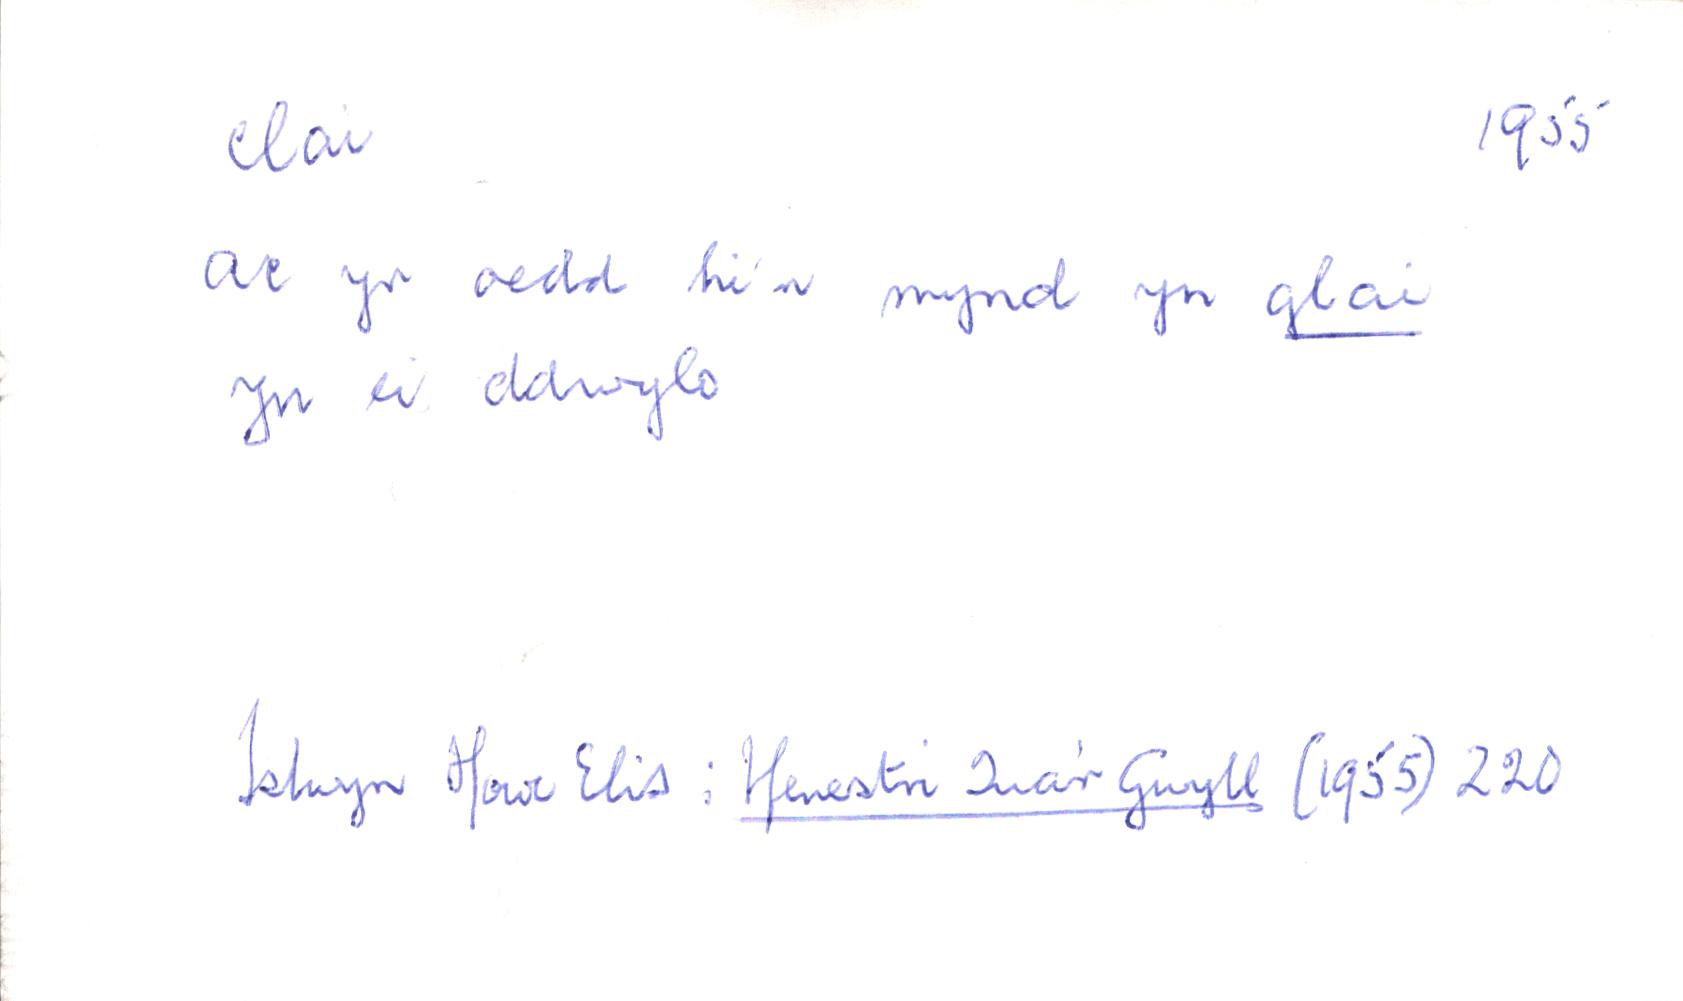 clai 1955
ac yr oedd hi'n mynd yn glai
yn ei ddwylo
Islwyn Ffowc Elis : Ffenestri Tua'r Gwyll (1955) 220